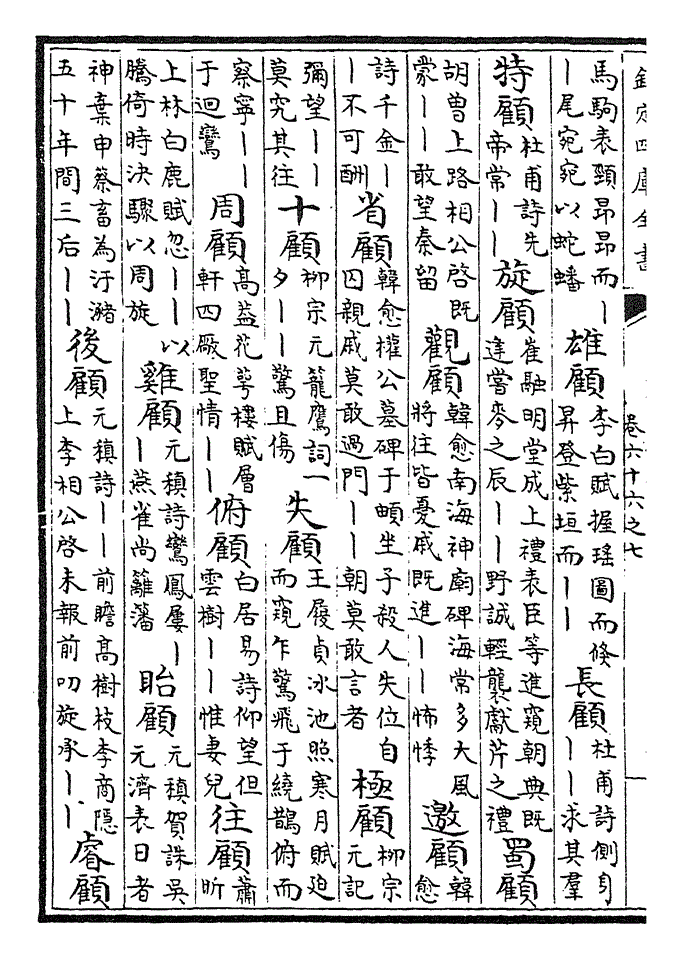 欽定四庫全書 卷六十六之七
馬駒表頸昂昂而丨丨尾宛宛以蛇蟠 雄顧 李白賦握瑤圖而倐昇登紫垣而丨丨 長顧 杜甫詩側身丨丨求其羣
特顧 杜甫詩先帝常丨丨 旋顧 崔融明堂成上禮表臣等進窺朝典既逢嘗麥之辰丨丨野誠輕襲獻芹之禮 蜀顧
胡曾上路相公啓既蒙丨丨敢望秦留 觀顧 韓愈南海神廟碑海常多大風將往皆憂戚既進丨丨怖悸 邀顧 韓愈
詩千金丨丨不可酬 省顧 韓愈權公墓碑于頔坐子殺人失位自囚親戚莫敢過門丨丨朝莫敢言者 極顧 柳宗元記
彌望丨丨莫究其往 十顧 柳宗元籠鷹詞一夕丨丨驚且傷 失顧 王履貞冰池照寒月賦迫而窺乍驚飛于繞鵲俯而
察寧丨丨于迴鸞 周顧 高益花萼樓賦層軒四敞聖情丨丨 俯顧 白居易詩仰望但雲樹丨丨惟妻兒 往顧 蕭昕
上林白鹿賦忽丨丨以騰倚時決驟以周旋 雞顧 元稹詩鸞鳳屢丨丨燕雀尚籬藩 眙顧 元稹賀誅吳元濟表日者
神棄申蔡畜為汙瀦五十年間三后丨丨 後顧 元稹詩丨丨前瞻高樹枝李商隱上李相公啓未報前叨旋承丨丨 睿顧